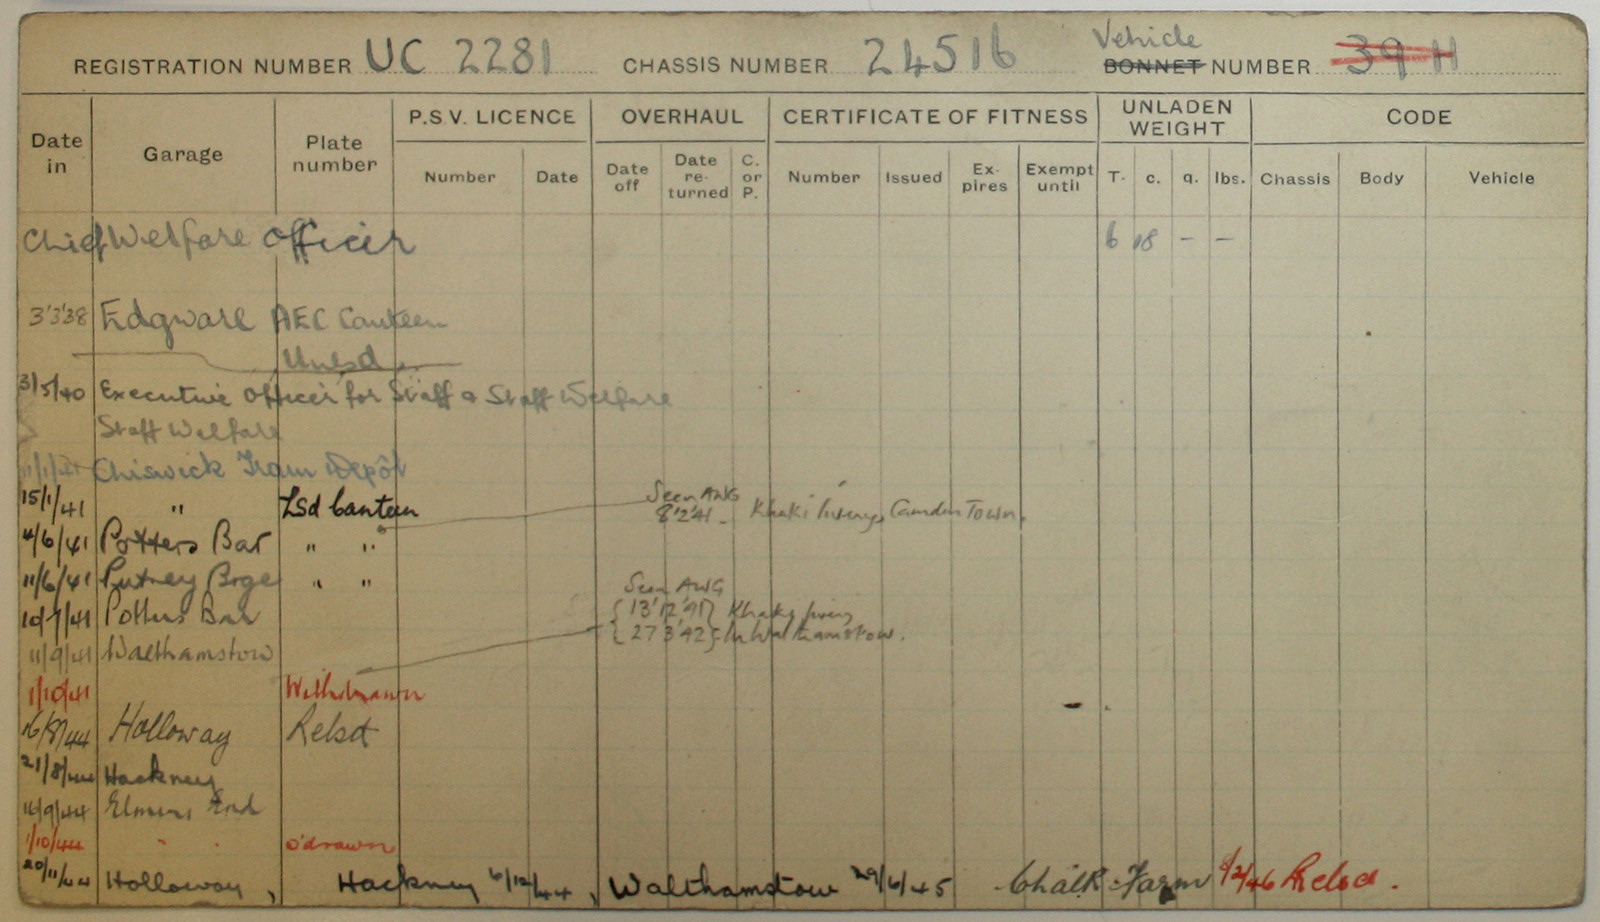 REGISTRATION NUMBER UC 2281 CHASSIS NUMBER 24516 Vehicle BONNET NUMBER 39 H
Date in Garage Plate number P.S.V. LICENCE OVERHAUL CERTIFICATE OF FITNESS UNLADEN WEIGHT CODE
Number Date Date off Date re-turned C. or P. Number Issued Ex-pires Exempt until T. c. q. lbs. Chassis Body Vehicle
Chief Welfare Officer 6 18 - -
3'3'38 Edgware AEC Canteen
Unlsd
3/5/40 Executive Officer for Staff & Staff Welfare
Staff Welfare
11/1/41 Chiswick Tram Depôt
15/1/41 " Lsd Canteen Seen AWG 8'2'41 Khaki livery, Camden Town.
4/6/41 Potters Bar " "
11/6/41 Putney Brge " "
Seen AWG
10/7/41 Potters Bar 13'12'41 Khaki livery
11/9/41 Walthamstow 27 3'42 In Walthamstow.
1/10/41 Withdrawn
16/8/44 Holloway Relsd
21/8/44 Hackney
16/9/44 Elmers End
1/10/44 " " o'drawn
20/11/44 Holloway, Hackney 6/12/44, Walthamstow 29/6/45 Chalk Farm 8/2/46 Relsd.